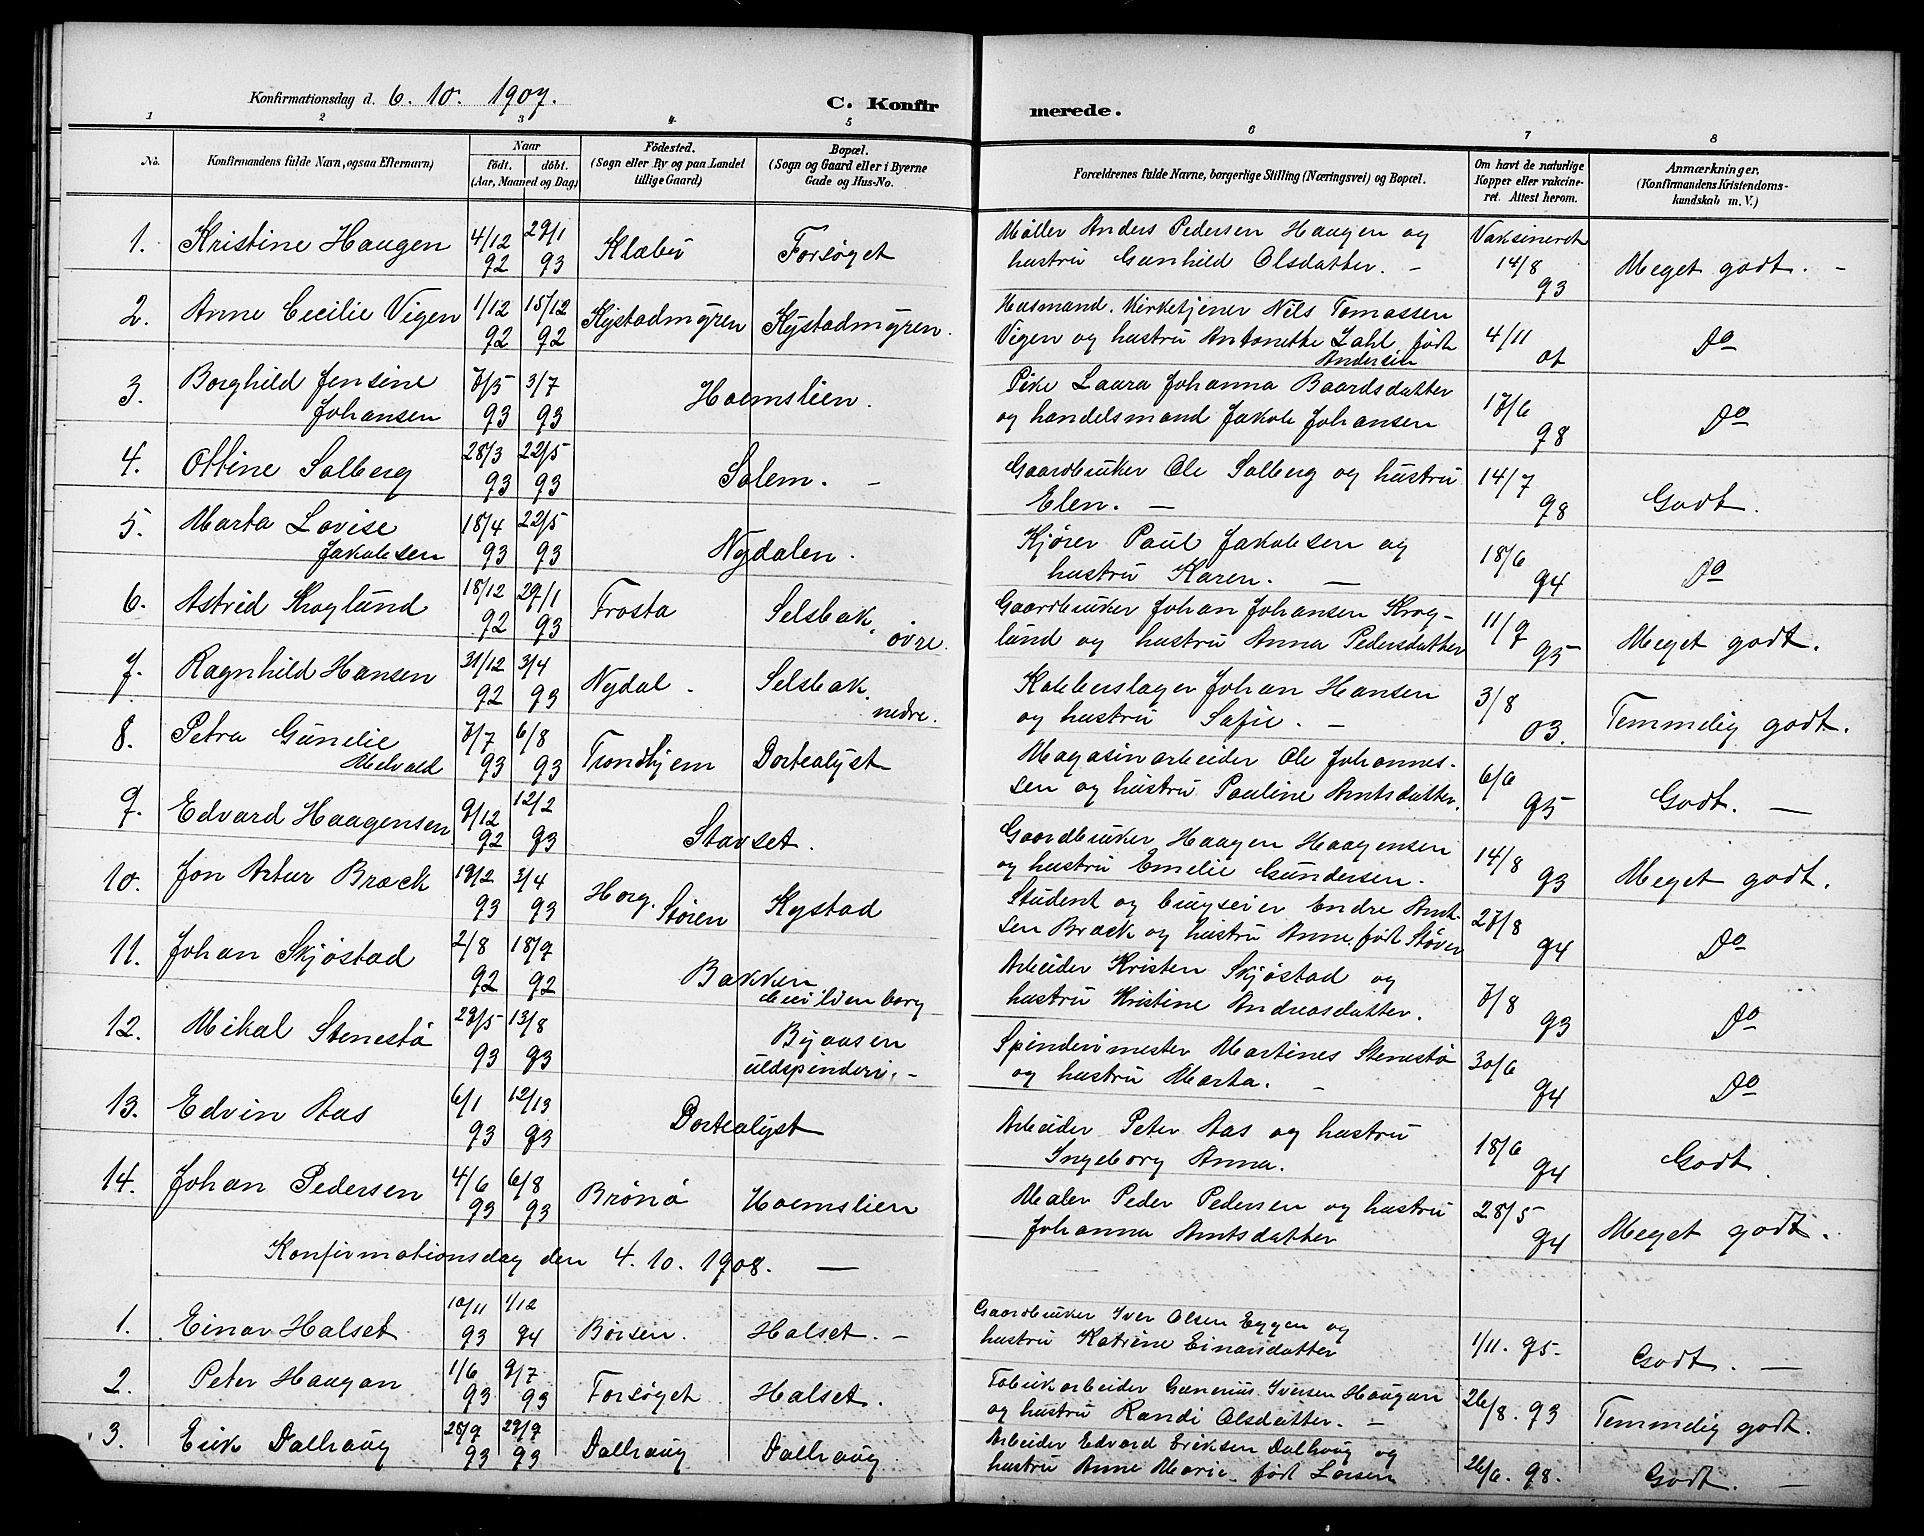 Konfirmationsdag d. 6. 10. 1907. C. Konfirmerede.
1 2 3 4 5 6 7 8
No. Konfirmandens fulde Navn, ogsaa Efternavn) Naar födt. döbt. (Aar, Maaned og Dag) Födested. (Sogn eller By og paa Landet tillige Gaard) Bopæl. (Sogn og Gaard eller i Byerne Gade og Hus-No. Forældrenes fulde Navne, borgerlige Stilling (Næringsvei) og Bopæl. Om havt de naturlige Kopper eller vakcineret. Attest herom. Anmærkninger. (Konfirmandens Kristendomskundskab m. V.)
1. Kristine Haugen 4/12 92 29/1 93 Klæbu Forsøget Møller Anders Pedersen Haugen og
hustru Gunhild Olsdatter. - Vaksineret 14/8 93 Meget godt. -
2. Anne Cecilie Vigen 1/12 92 15/12 92 Kystadmyren Kystadmyren. Husmand. Kirketjener Nils Tomassen
Vigen og hustru Antonette Lahl, født Andersen 4/11 01 Do
3. Borghild Jensine Johansen 7/5 93 3/7 93 Hoemslien. Pike Laura Johanna Baardsdatter
og handelsmand Jakob Johansen 17/6 98 Do
4. Ottine Solberg 28/3 93 22/5 93 Solem. - Gaardbruker Ole Solberg og hustru
Elen. - 14/7 98 Godt.
5. Marta Lovise Jakobsen 18/4 93 22/5 93 Nydalen. Kjører Paul Jakobsen og
hustru Karen. - 18/6 94 Do
6. Astrid Kroglund 18/12 92 29/1 93 Frosta Selsbak, øvre. Gaardbruker Johan Johansen Krog-
lund og hustru Anna Pedersdatter 11/7 95 Meget godt.
7. Ragnhild Hansen 31/12 92 3/4 93 Nydal. Selsbak, nedre. Kobberslager Johan Hansen
og hustru Sofie. - 3/8 03. Temmelig godt.
8. Petra Gunelie Melvold 7/7 93 6/8 93 Trondhjem Dortealyst Magasinarbeider Ole Johannes-
sen og hustru Pauline Arntsdatter. 6/6 95 Godt. -
9. Edvard Haagensen 9/12 92 12/2 93 Stavset. Gaardbruker Haagen Haagensen
og hustru Emelie Gundersen. 14/8 93 Meget godt.
10. Jon Artur Bræck 19/2 93 3/4 93 Horg. Støren Kystad Student og Endre Arnt-
sen Bræck og hustru Anne, født Støver 27/8 94 Do
11. Johan Skjøstad 2/8 92 18/9 92 Bakken Arbeider Kristen Skjøstad og
hustru Kristine Andreasdatter. 7/8 93 Do
12. Mikal Stenestø 29/5 93 13/8 93 Byaasen uldspinderi. - Spinderimester Martines Stenestø
og hustru Marta. - 30/6 94 Do
13. Edvin Aas 6/1 93 12/13 93 Dortealyst Arbeider Peter Aas og hustru
Ingeborg Anna. 18/6 94 Godt.
14. Johan Pedersen 4/6 93 6/8 93 Brønø Hoemslien Maler Peder Pedersen og hustru
Johanna Arntsdatter 28/5 94 Meget godt.
Konfirmationsdag den 4. 10. 1908. -
1. Einar Halset 10/11 93 1/12 94 Børsen. Halset. - Gaardbruker Iver Olsen Eggen og
hustru Katrine Einarsdatter 1/11. 95. Godt. -
2. Peter Haugan 1/6 93 9/7 93 Forsøget Halset. Fabrikarbeider Iversen Haugan
og hustru Randi Olsdatter. - 26/8. 93 Temmelig godt.
3. Erik Dalhaug 28/7 93 29/7 93 Dalhaug Dalhaug. Arbeider Edvard Eriksen Dalhaug og
hustru Anne Marie født Larsen 26/6. 98. Godt. -